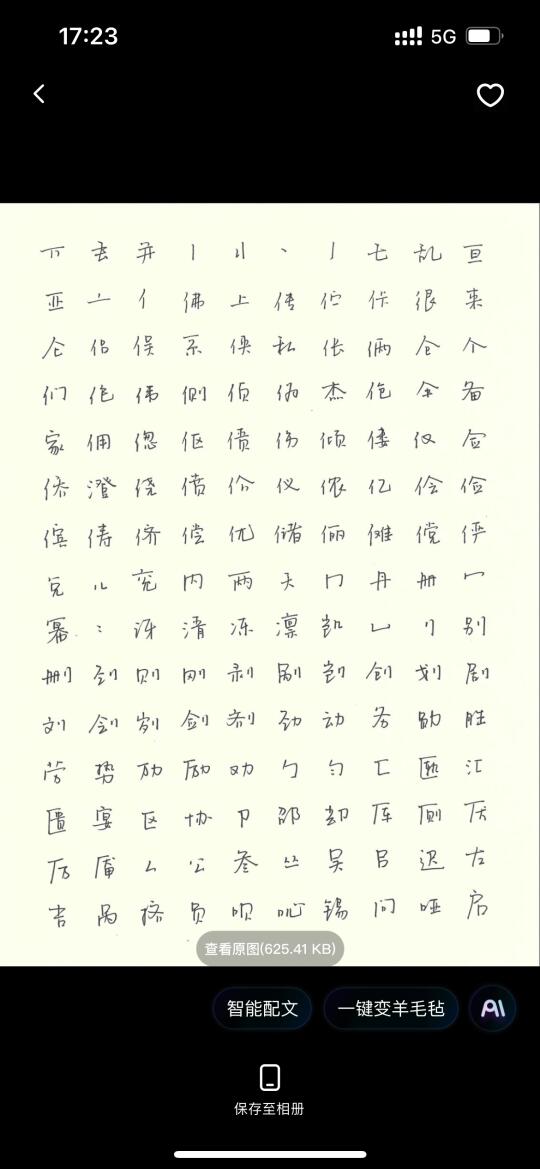 17:23 5G
丌 丢 并 丨 刂 丶 丿 乇 乱 亘
亚 亠 亻 佛 上 倩 伫 佧 很 来
仑 侣 俣 系 侠 私 伥 俩 仓 个
们 伧 伟 侧 侦 伪 杰 伧 伞 备
家 佣 偬 伛 偾 伤 倾 偻 仪 佥
侨 澄 侥 偾 价 仪 侬 亿 侩 俭
傧 俦 侪 偿 优 储 俪 傩 傥 俨
兑 儿 兖 内 两 夭 冂 丹 册 冖
幂 冫 冴 清 冻 凛 凯 凵 刂 别
删 刭 则 刚 剥 剐 剀 创 划 剧
刘 刽 刿 剑 剂 劲 动 务 勋 胜
劳 势 励 劢 劝 勹 匀 匚 匦 汇
匮 宴 区 协 卩 郄 却 厍 厕 厌
厉 厣 厶 厸 叁 丛 吴 吕 迟 右
吉 呙 捂 员 呗 吣 锡 问 哑 启
查看原图(625.41 KB)
智能配文 一键变羊毛毡 AI
保存至相册